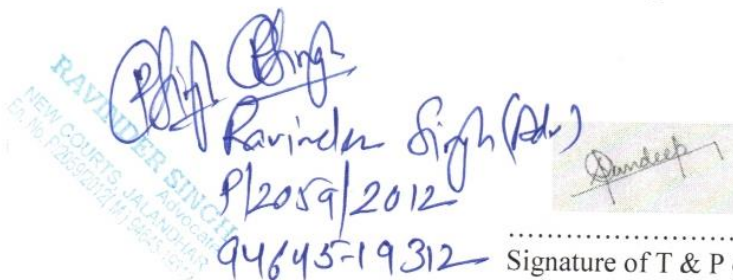 RAVINDER SINGH
Advocate
NEW COURTS, JALANDHAR
En. No. P/2059/2012 (M)
Ravinder Singh (Adv)
P/2059/2012
94645-19312
Sandeep
........................
Signature of T & P